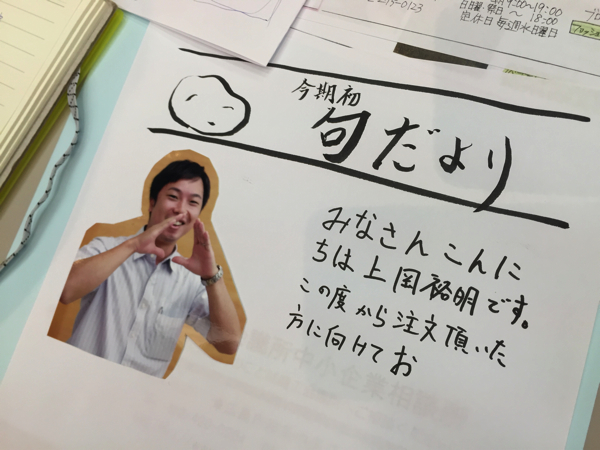 9:00〜19:00
日曜・祭日 〜 18:00
定休日 毎週水曜日
今期初
旬だより
みなさん こんに
ちは 上岡裕明です。
この度から注文頂いた
方に向けてお